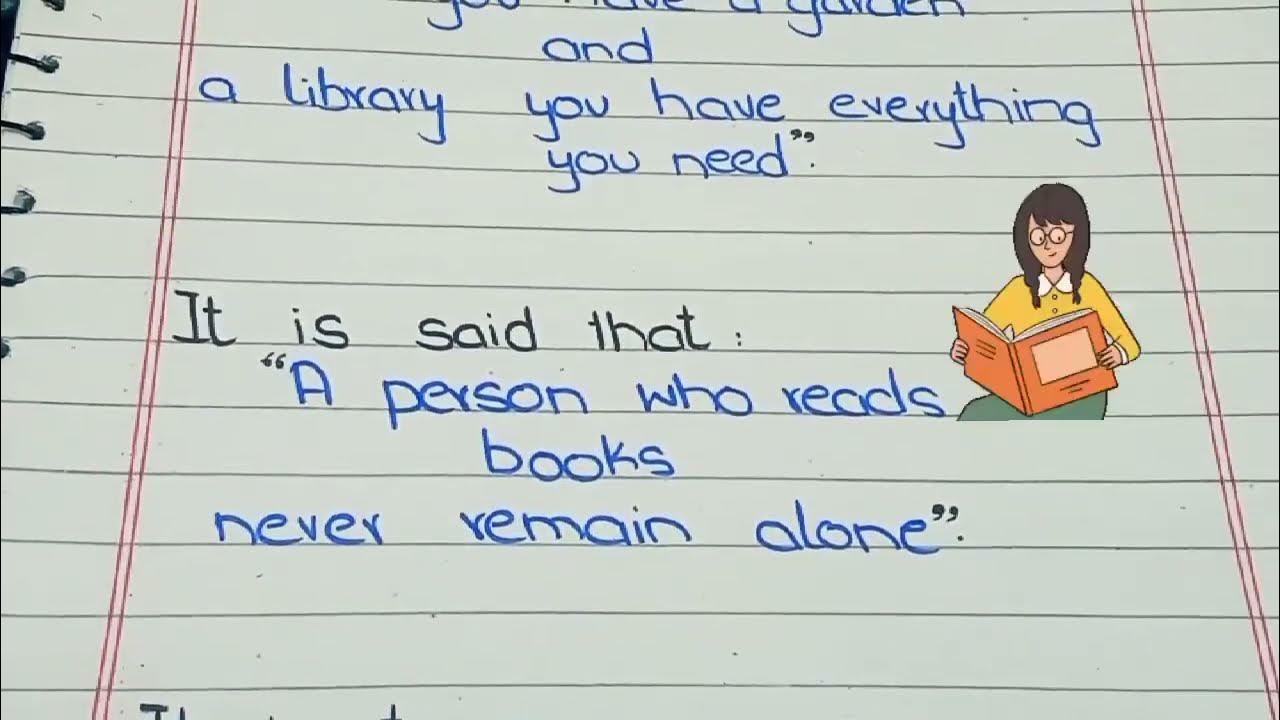 you have a garden
and
a library you have everything
you need”.
It is said that :
“A person who reads
books
never remain alone”.